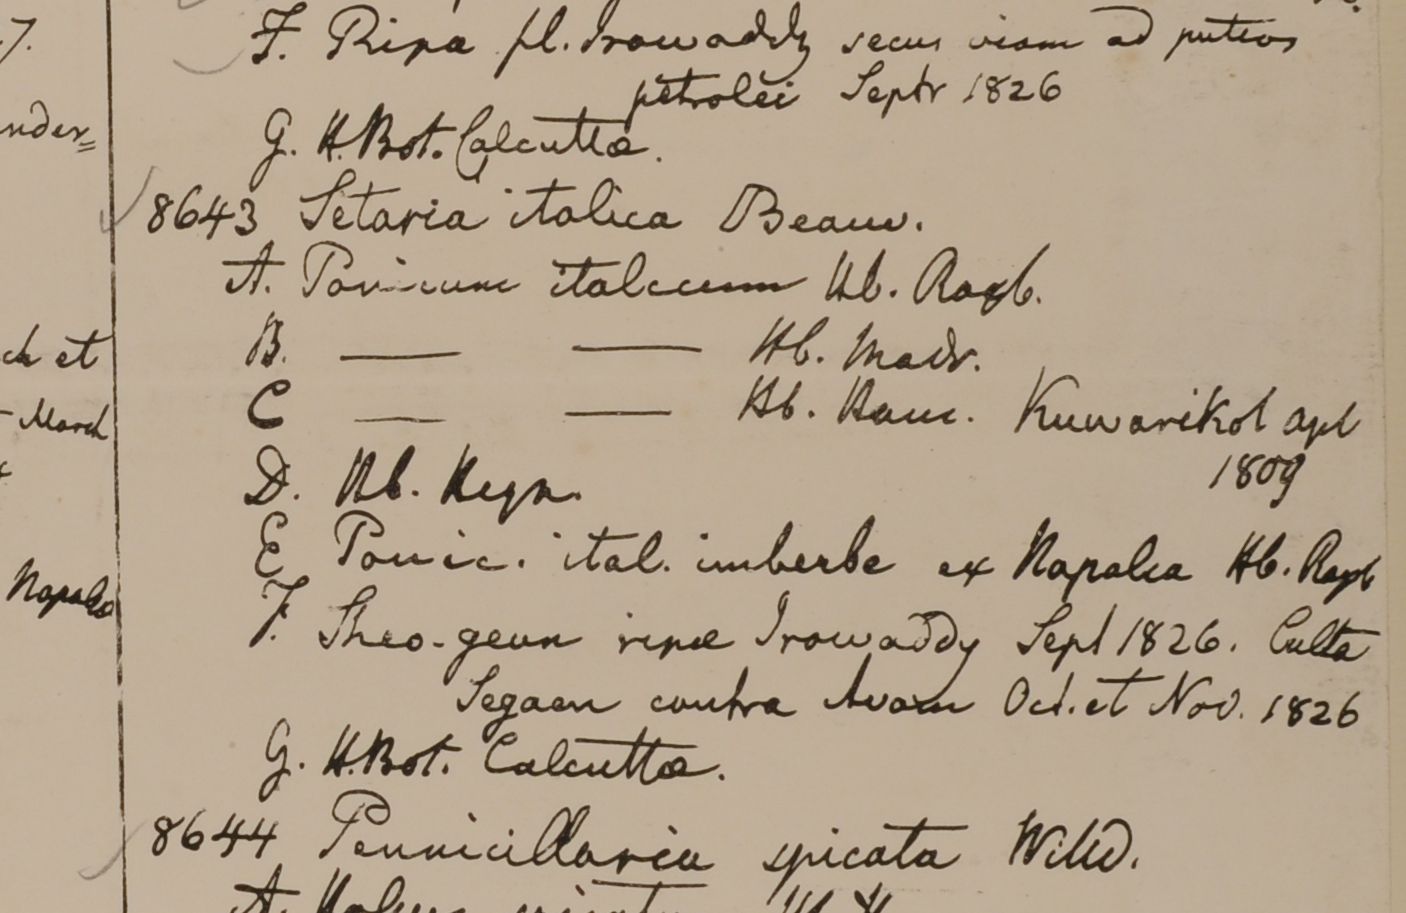 7.
F. Ripa fl. Irawaddy secus viam ad puteos
petrolei Septr 1826
nder=
G. H. Bot. Calcutta.
8643 Setaria italica Beauv.
A. Panicum italicum Hb. Roxb.
ch et
B. —— —— Hb. Madr.
C —— —— Hb. Ham. Kuwarikol apl
- March
1809
D. Hb. Heyn.
E Panic. ital. imberbe ex Napalia Hb. Roxb
Napalia
F. Sheo-geun ripæ Irawaddy Sept 1826. Culta
Segaen contra Avam Oct. et Nov. 1826
G. H. Bot. Calcutta.
8644 Pennicillaria spicata Willd.
A. Holcus spicatus Hb. H